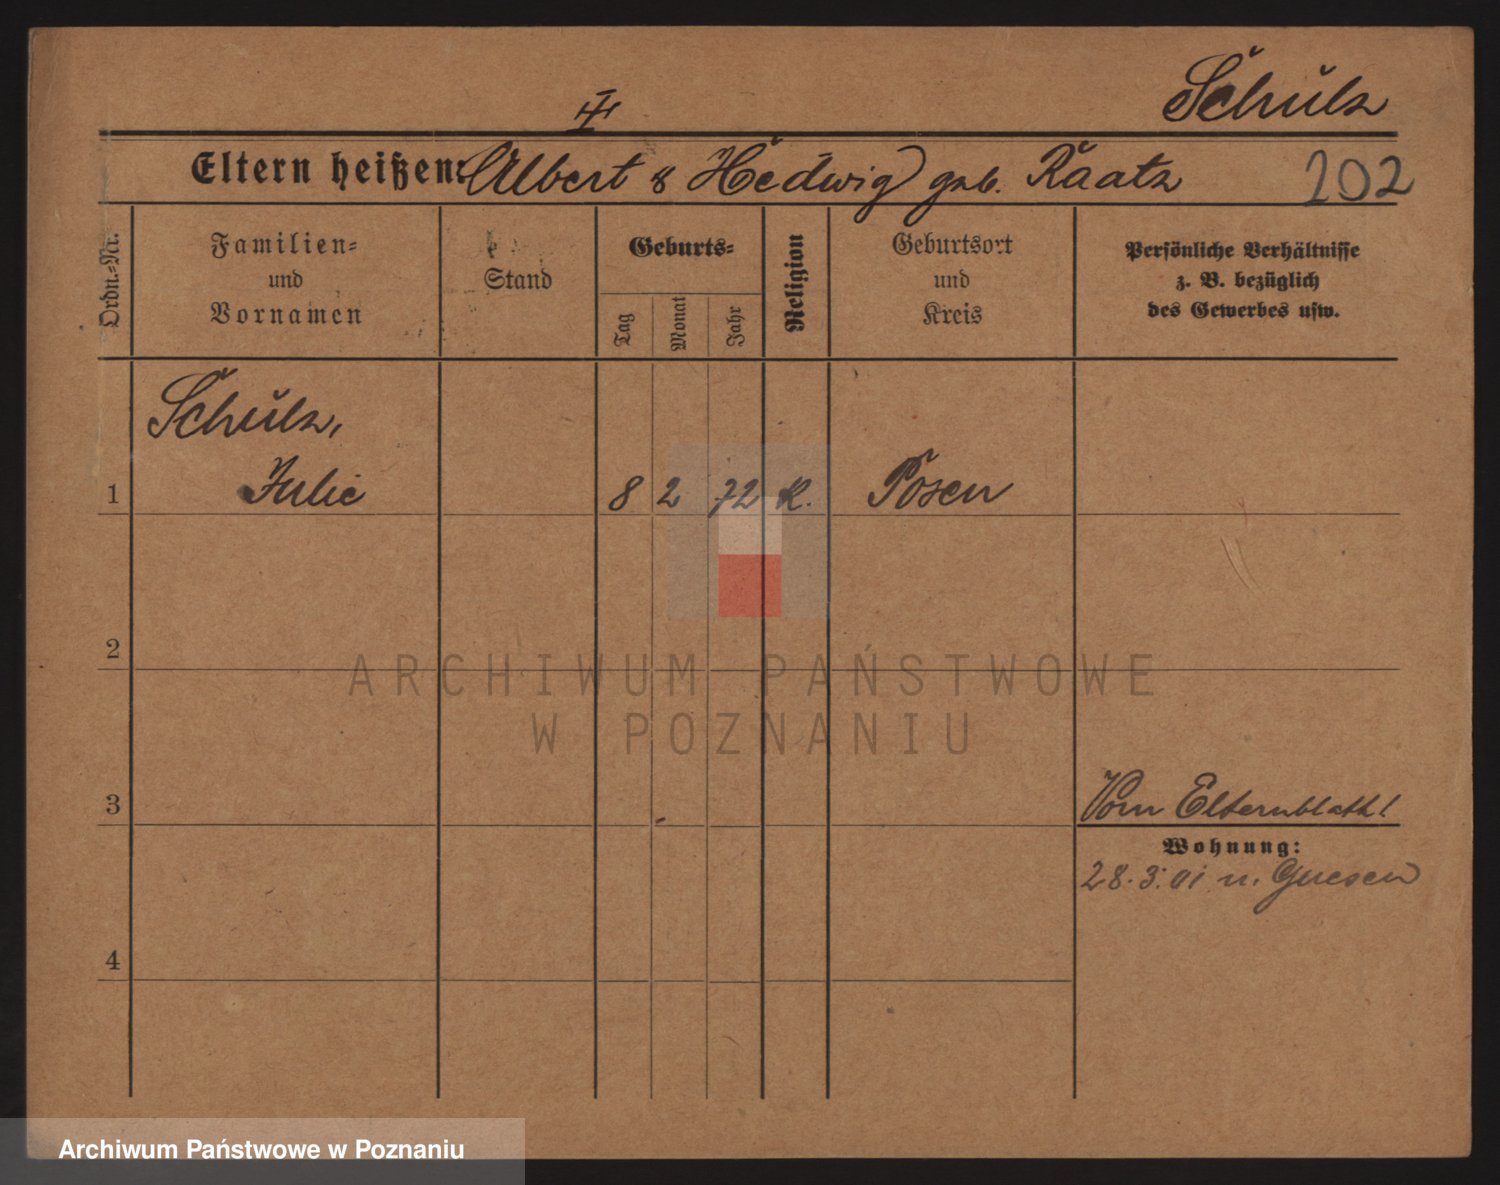 Schulz
II
Eltern heißen: Albert & Hedwig geb. Raatz 202
Ordn.-Nr.
Familien-
und
Vornamen
Stand
Geburts-
Tag
Monat
Jahr
Religion
Geburtsort
und
Kreis
Persönliche Verhältnisse
z. B. bezüglich
des Gewerbes usw.
Schulz,
1 Julie 8 2 72 k. Posen
2
ARCHIWUM PAŃSTWOWE
W POZNANIU
3 Vom Elternblatt!
Wohnung:
28.3.01 n. Gnesen
4
Archiwum Państwowe w Poznaniu